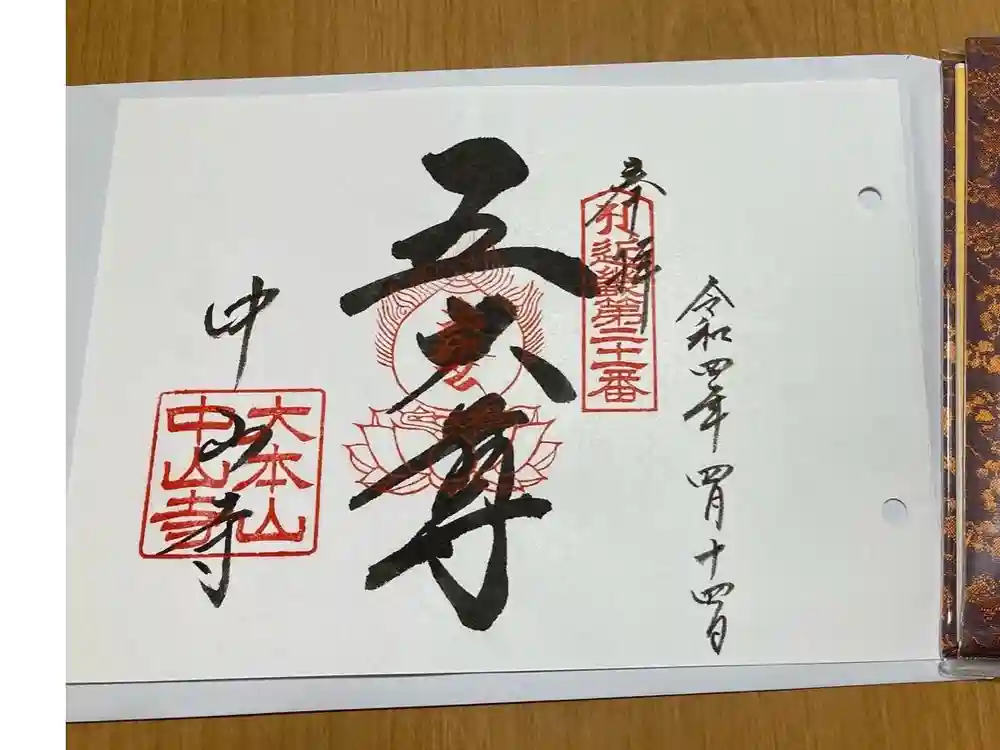 奉拝
令和四年四月十四日
近畿第二十一番
五大尊
中山寺
大本山
中山寺